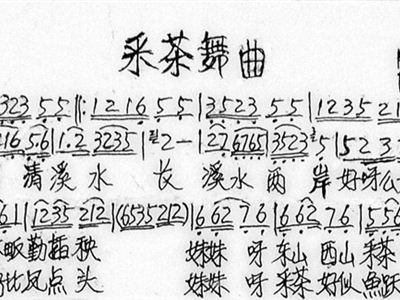 采茶舞曲
323 5 5 ‖: 12 16 5 5 | 3523 5 5 | 1235 21
216 5·6 | 1·2 3235 | 2 — | 27 6765 3523 5 | 52 3
清溪水 长 溪水两岸好呀么
61 | 1235 212 | (6535 212) | 6 62 7 6 | 6 62 7 6 | 5 5 6
畈勤插秧 妹妹呀东山西山采茶
比凤点头 妹妹呀采茶好似鱼跃